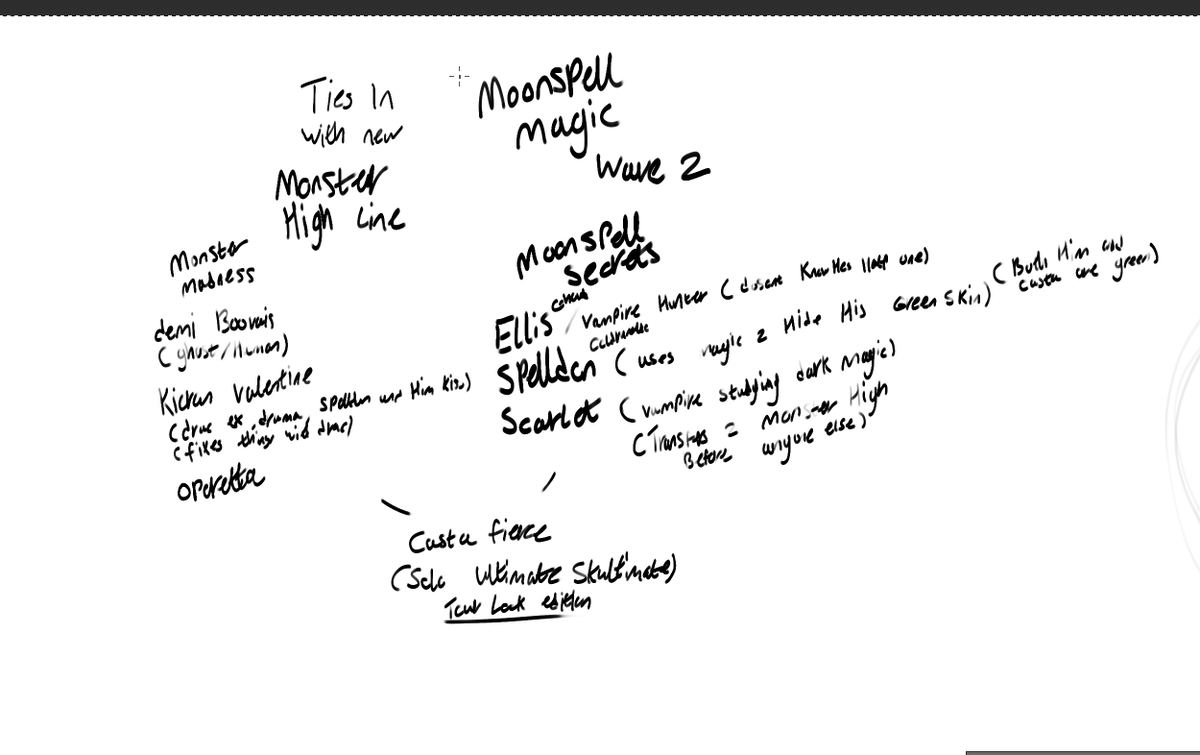 Ties In
with new
Monster
High Line
Moonspell
magic
Wave 2
Monster
madness
demi Boovais
(ghost/Human)
Kieran Valentine
(drac ex, drama, Spelldon and Him Kiss)
(fixes things wid drac)
Operetta
Moonspell
Secrets
Ellis / Vampire Hunter (dosent Know Hes Half one)
Spelldon (uses magic 2 Hide His Green Skin) (Both Him and
Casta are green)
Scarlet (vampire studying dark magic)
(Transfers = Monster High
Before anyone else)
Casta fierce
(Solo Ultimate Skultimate)
Tour Look edition